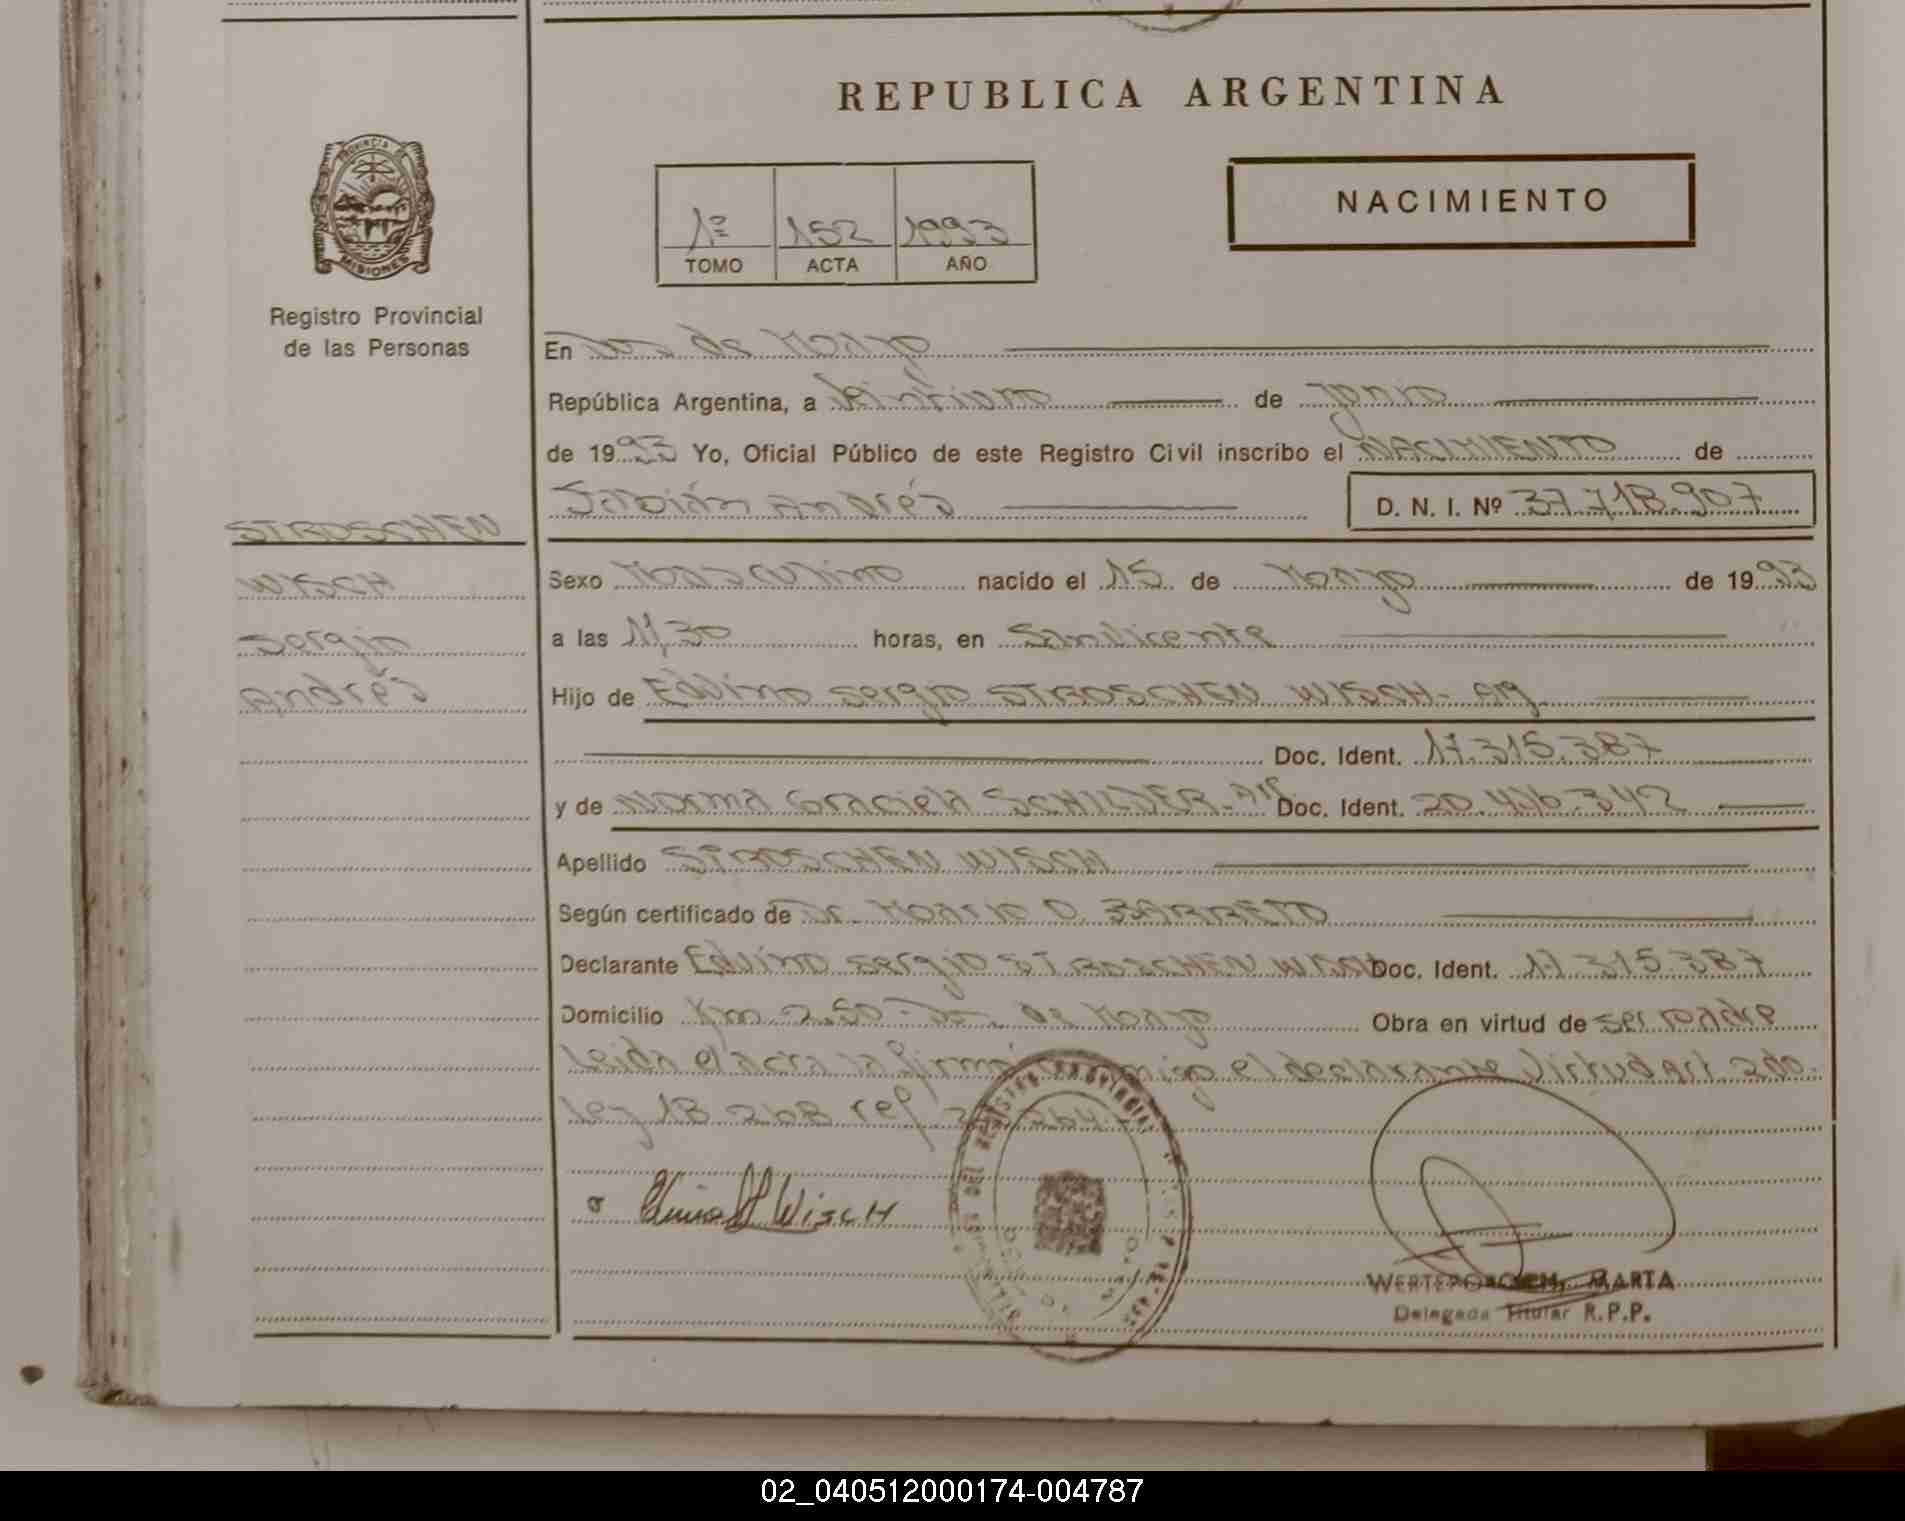 REPUBLICA ARGENTINA
PROVINCIA DE
MISIONES
Registro Provincial
de las Personas
NACIMIENTO
1º 152 1993
TOMO ACTA AÑO
En Dos de Mayo
República Argentina, a Veintiuno de junio
de 1993 Yo, Oficial Público de este Registro Civil inscribo el NACIMIENTO de
Fabián Andrés D. N. I. Nº 37.718.907
STROSCHEN
WISCH
Sergio
Andrés
Sexo Masculino nacido el 15 de Marzo de 1993
a las 11,30 horas, en San Vicente
Hijo de Edvino Sergio STROSCHEN WISCH - Arg
Doc. Ident. 17.315.387
y de Norma Graciela SCHILDER - Arg Doc. Ident. 20.416.342
Apellido STROSCHEN WISCH
Según certificado de Dr. Mario O. BARRETO
Declarante Edvino Sergio STROSCHEN WISCH Doc. Ident. 17.315.387
Domicilio Km 250 - Dos de Mayo Obra en virtud de ser padre
Leída el acta la firma conmigo el declarante Virtud Art 2do.
ley 18.268 ref 264
Wisch
WERTEPO MARTA
Delegada Titular R.P.P.
02_040512000174-004787